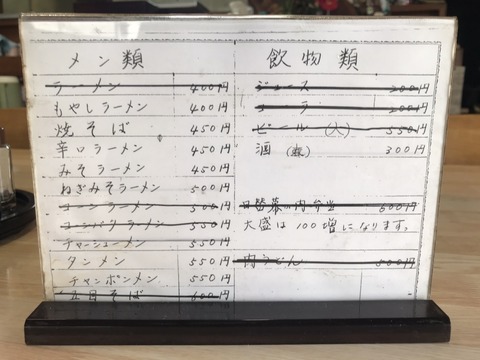 メン類
ラーメン 400円
もやしラーメン 400円
焼そば 450円
辛口ラーメン 450円
みそラーメン 450円
ねぎみそラーメン 500円
コーンラーメン 500円
コーンバタラーメン 550円
チャーシューメン 550円
タンメン 550円
チャンポンメン 550円
五目そば 600円
飲物類
ジュース 200円
コーラ 200円
ビール (大) 550円
酒 300円
日替幕の内弁当 500円
大盛は100増になります。
肉うどん 500円